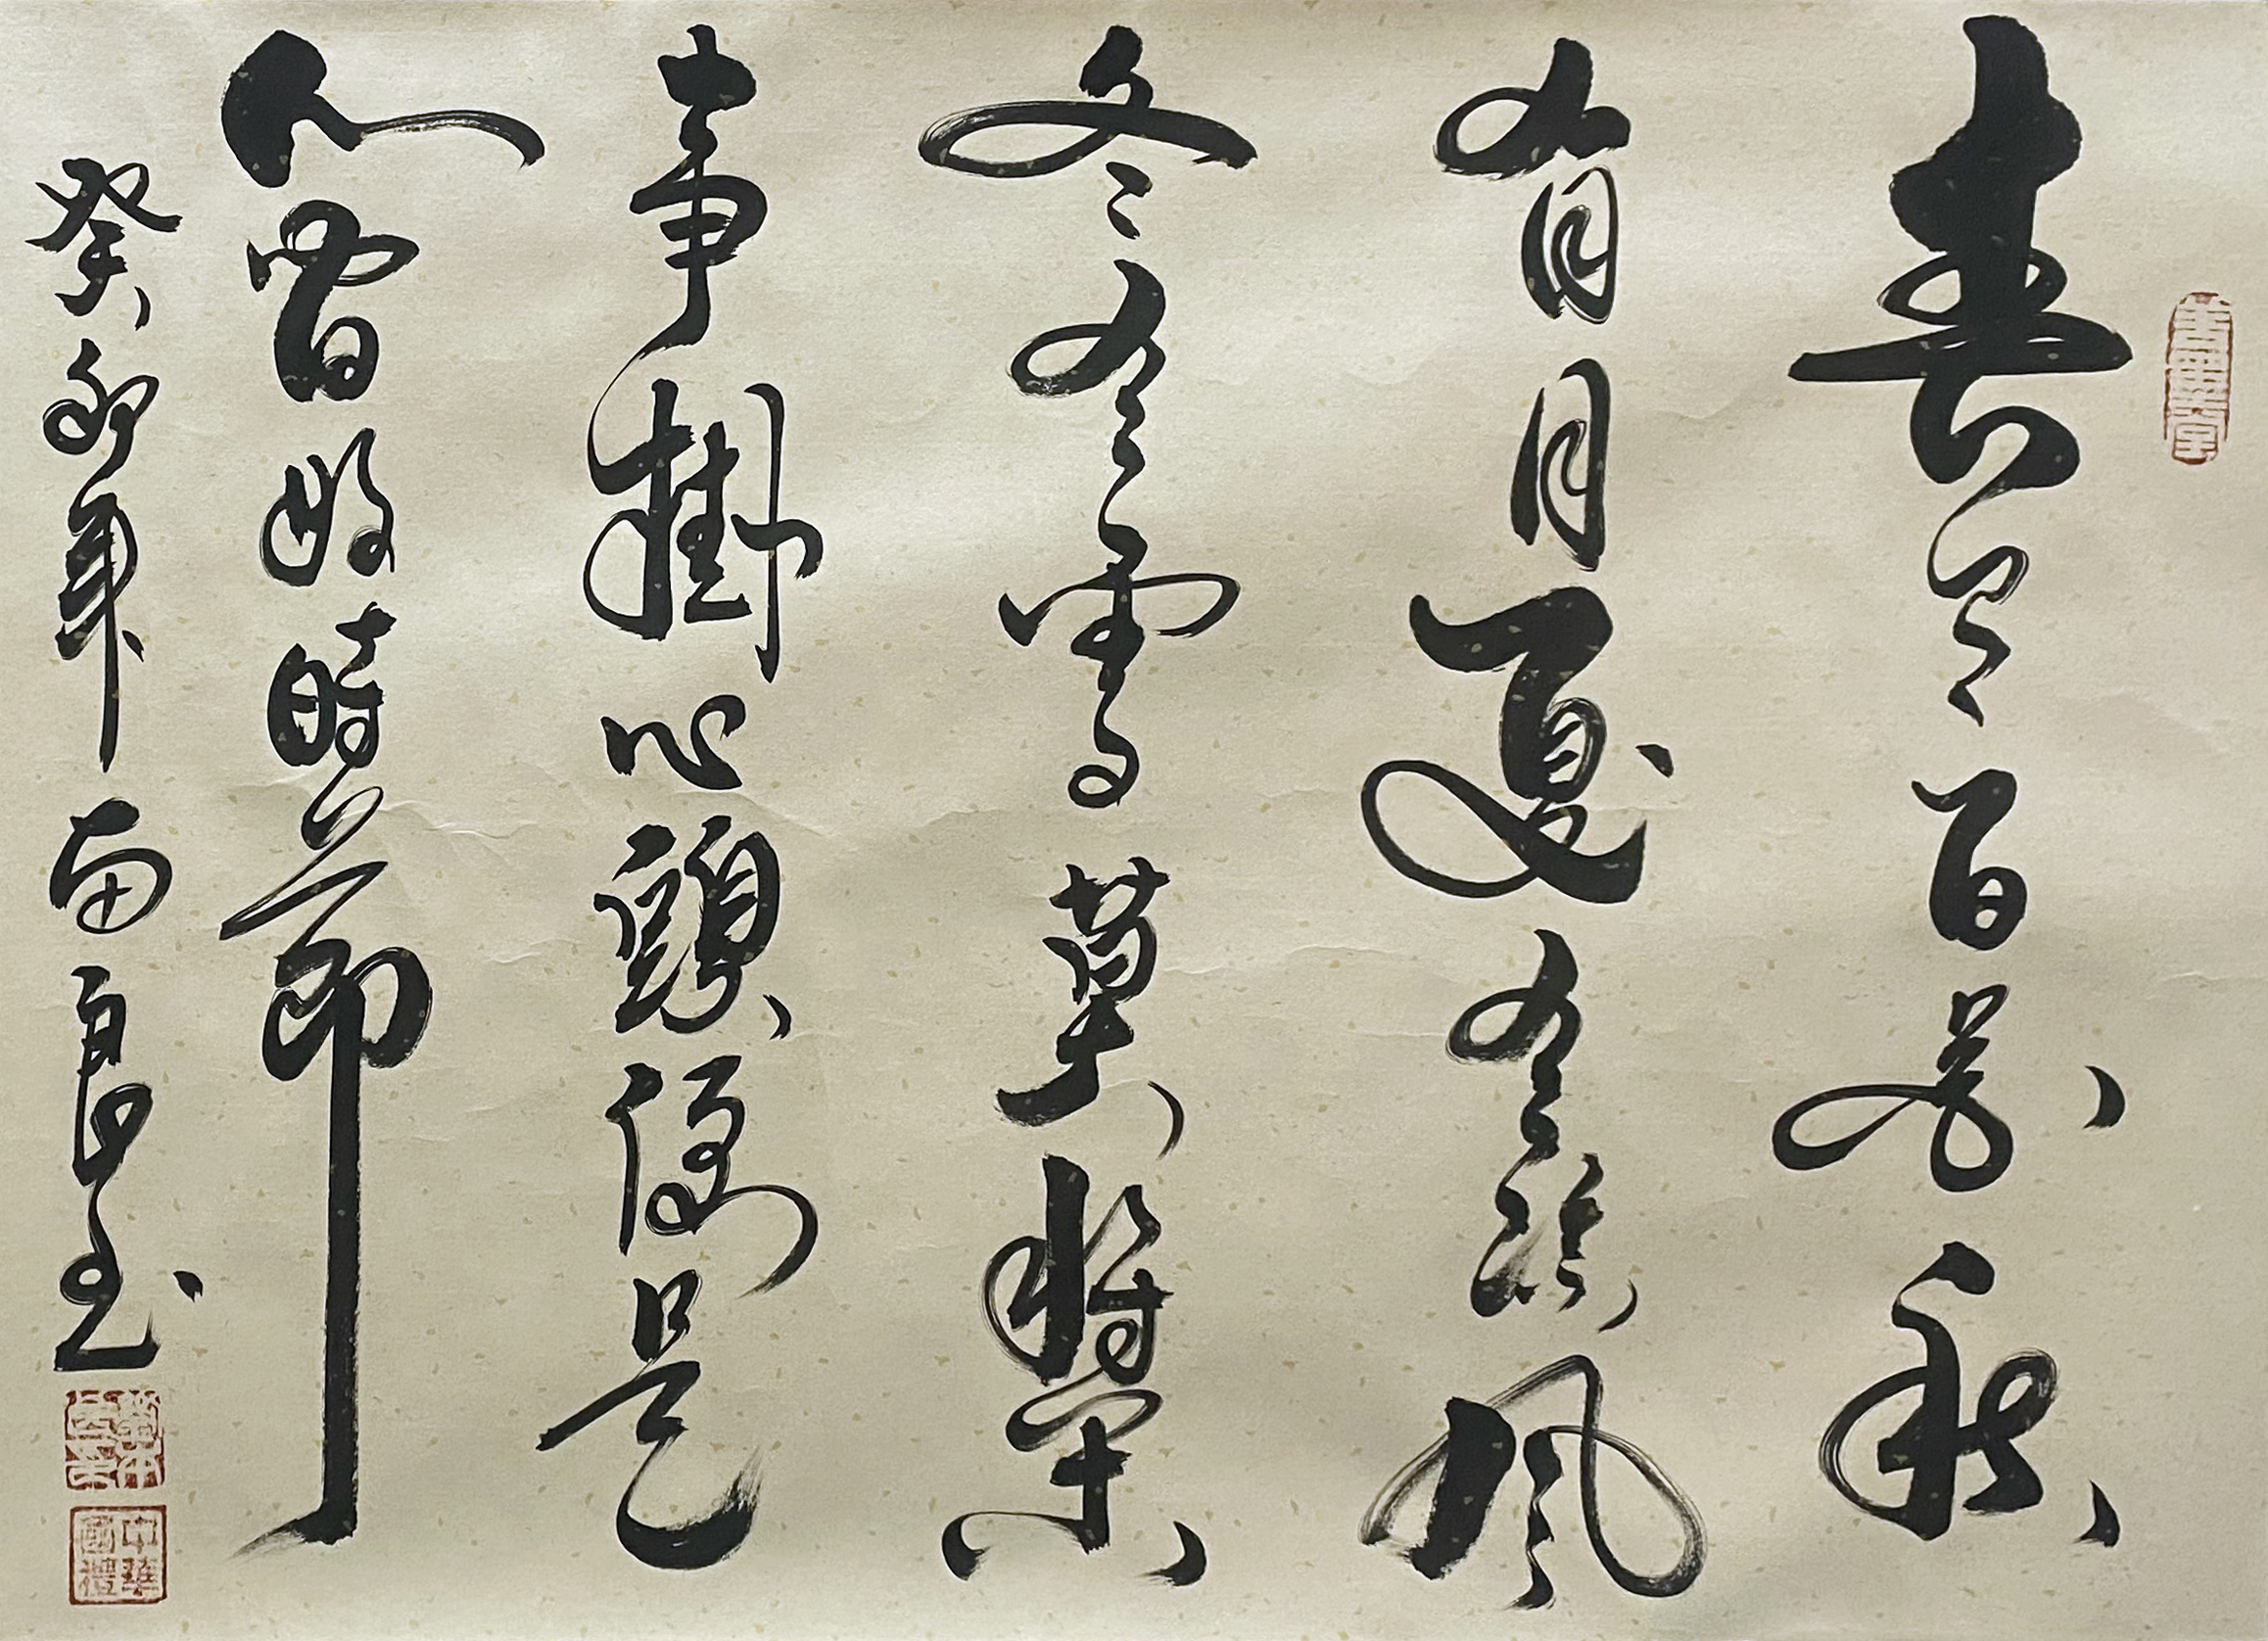 春有百花秋
有月夏有涼風
冬有雪莫將閑
事掛心頭便是
人間好時節
癸卯年 良玉
中華國禮